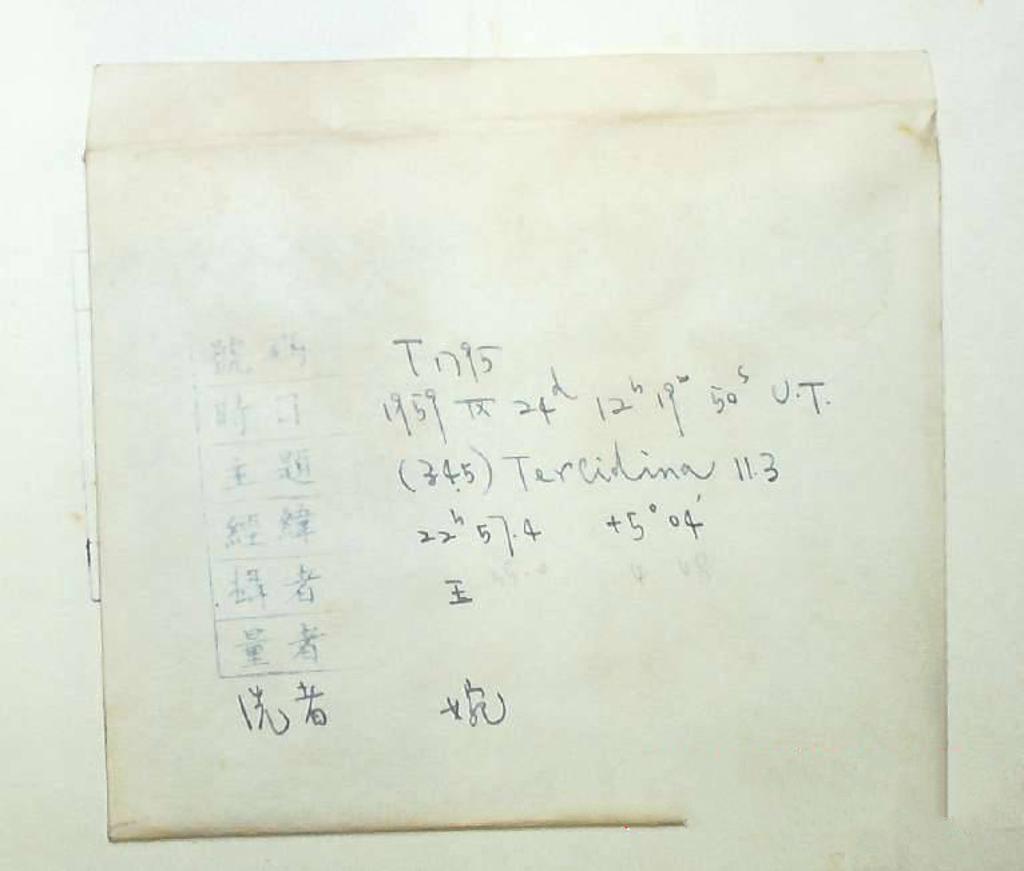 號碼 T 1795
時日 1959 IX 24ᵈ 12ʰ 19ᵐ 50ˢ U.T.
主題 (345) Tercidina 11.3
經緯 22ʰ 57.4 +5° 04′
攝者 王
量者
洗者 婉